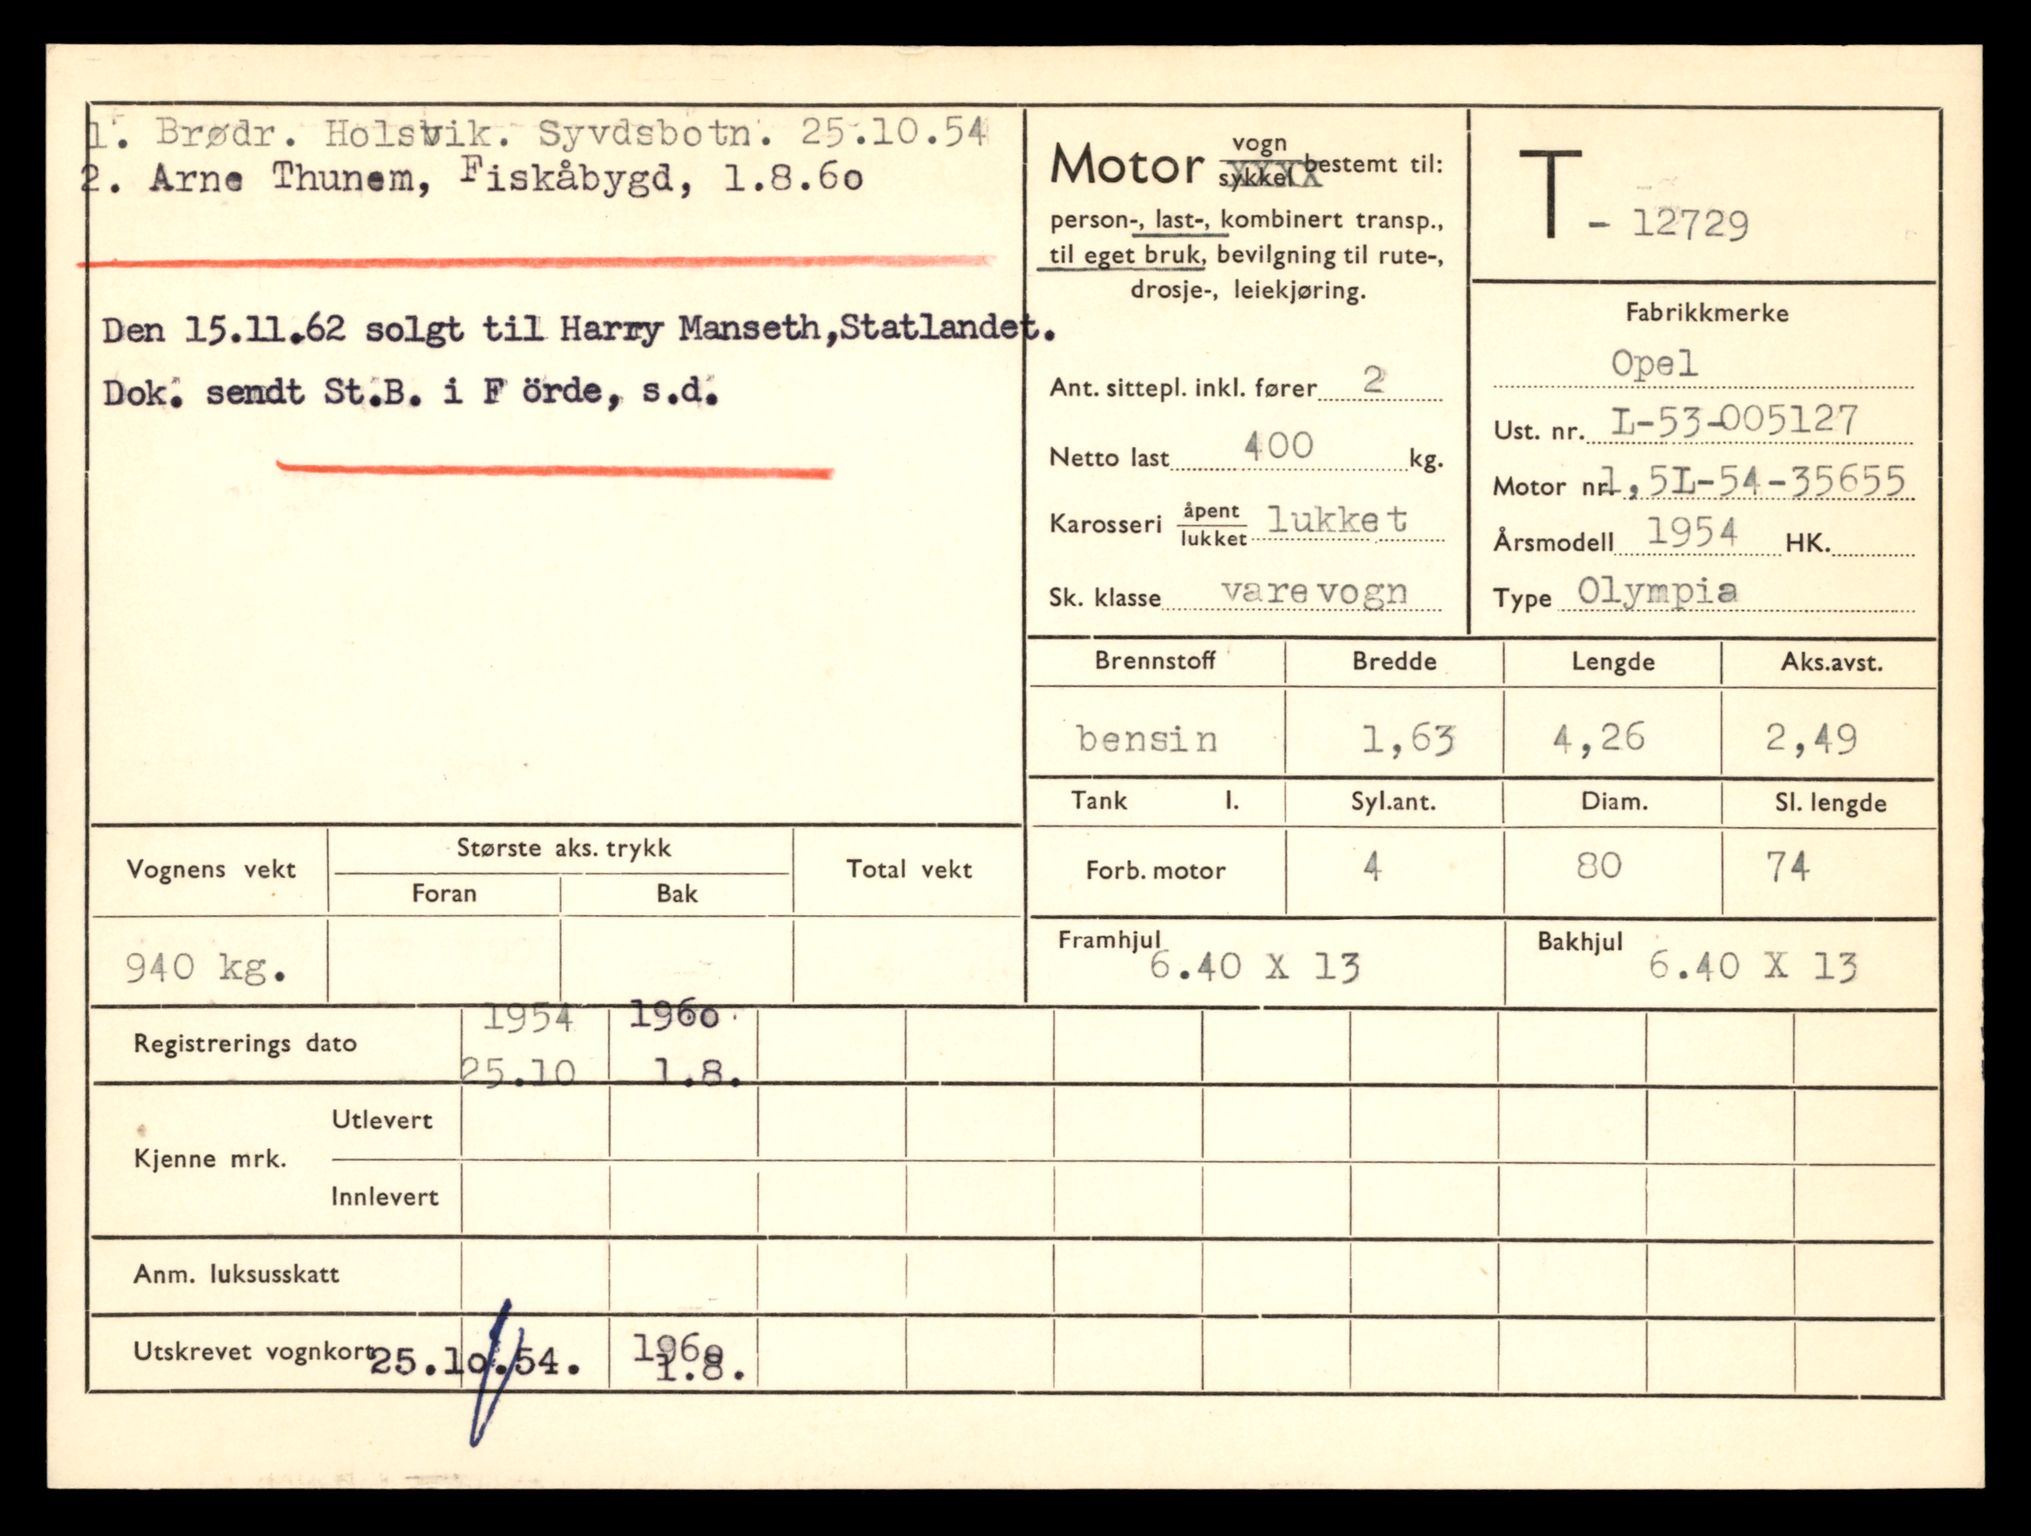 1. Brødr. Holsvik. Syvdsbotn. 25.10.54
2. Arne Thunem, Fiskåbygd, 1.8.60
Den 15.11.62 solgt til Harry Manseth,Statlandet.
Dok. sendt St.B. i F örde, s.d.
Motor vogn bestemt til:
sykkel XXXX
person-, last-, kombinert transp.,
til eget bruk, bevilgning til rute-,
drosje-, leiekjøring.
Ant. sittepl. inkl. fører 2
Netto last 400 kg.
Karosseri åpent lukket lukket
Sk. klasse varevogn
T - 12729
Fabrikkmerke
Opel
Ust. nr. L-53-005127
Motor nr. 1,5L-54-35655
Årsmodell 1954 HK.
Type Olympia
Brennstoff Bredde Lengde Aks.avst.
bensin 1,63 4,26 2,49
Tank l. Syl.ant. Diam. Sl. lengde
Forb. motor 4 80 74
Framhjul 6.40 X 13 Bakhjul 6.40 X 13
Vognens vekt Største aks. trykk Total vekt
Foran Bak
940 kg.
1954 1960
Registrerings dato
25.10 1.8.
Utlevert
Kjenne mrk.
Innlevert
Anm. luksusskatt
Utskrevet vognkort 25.10.54. 1960
1.8.